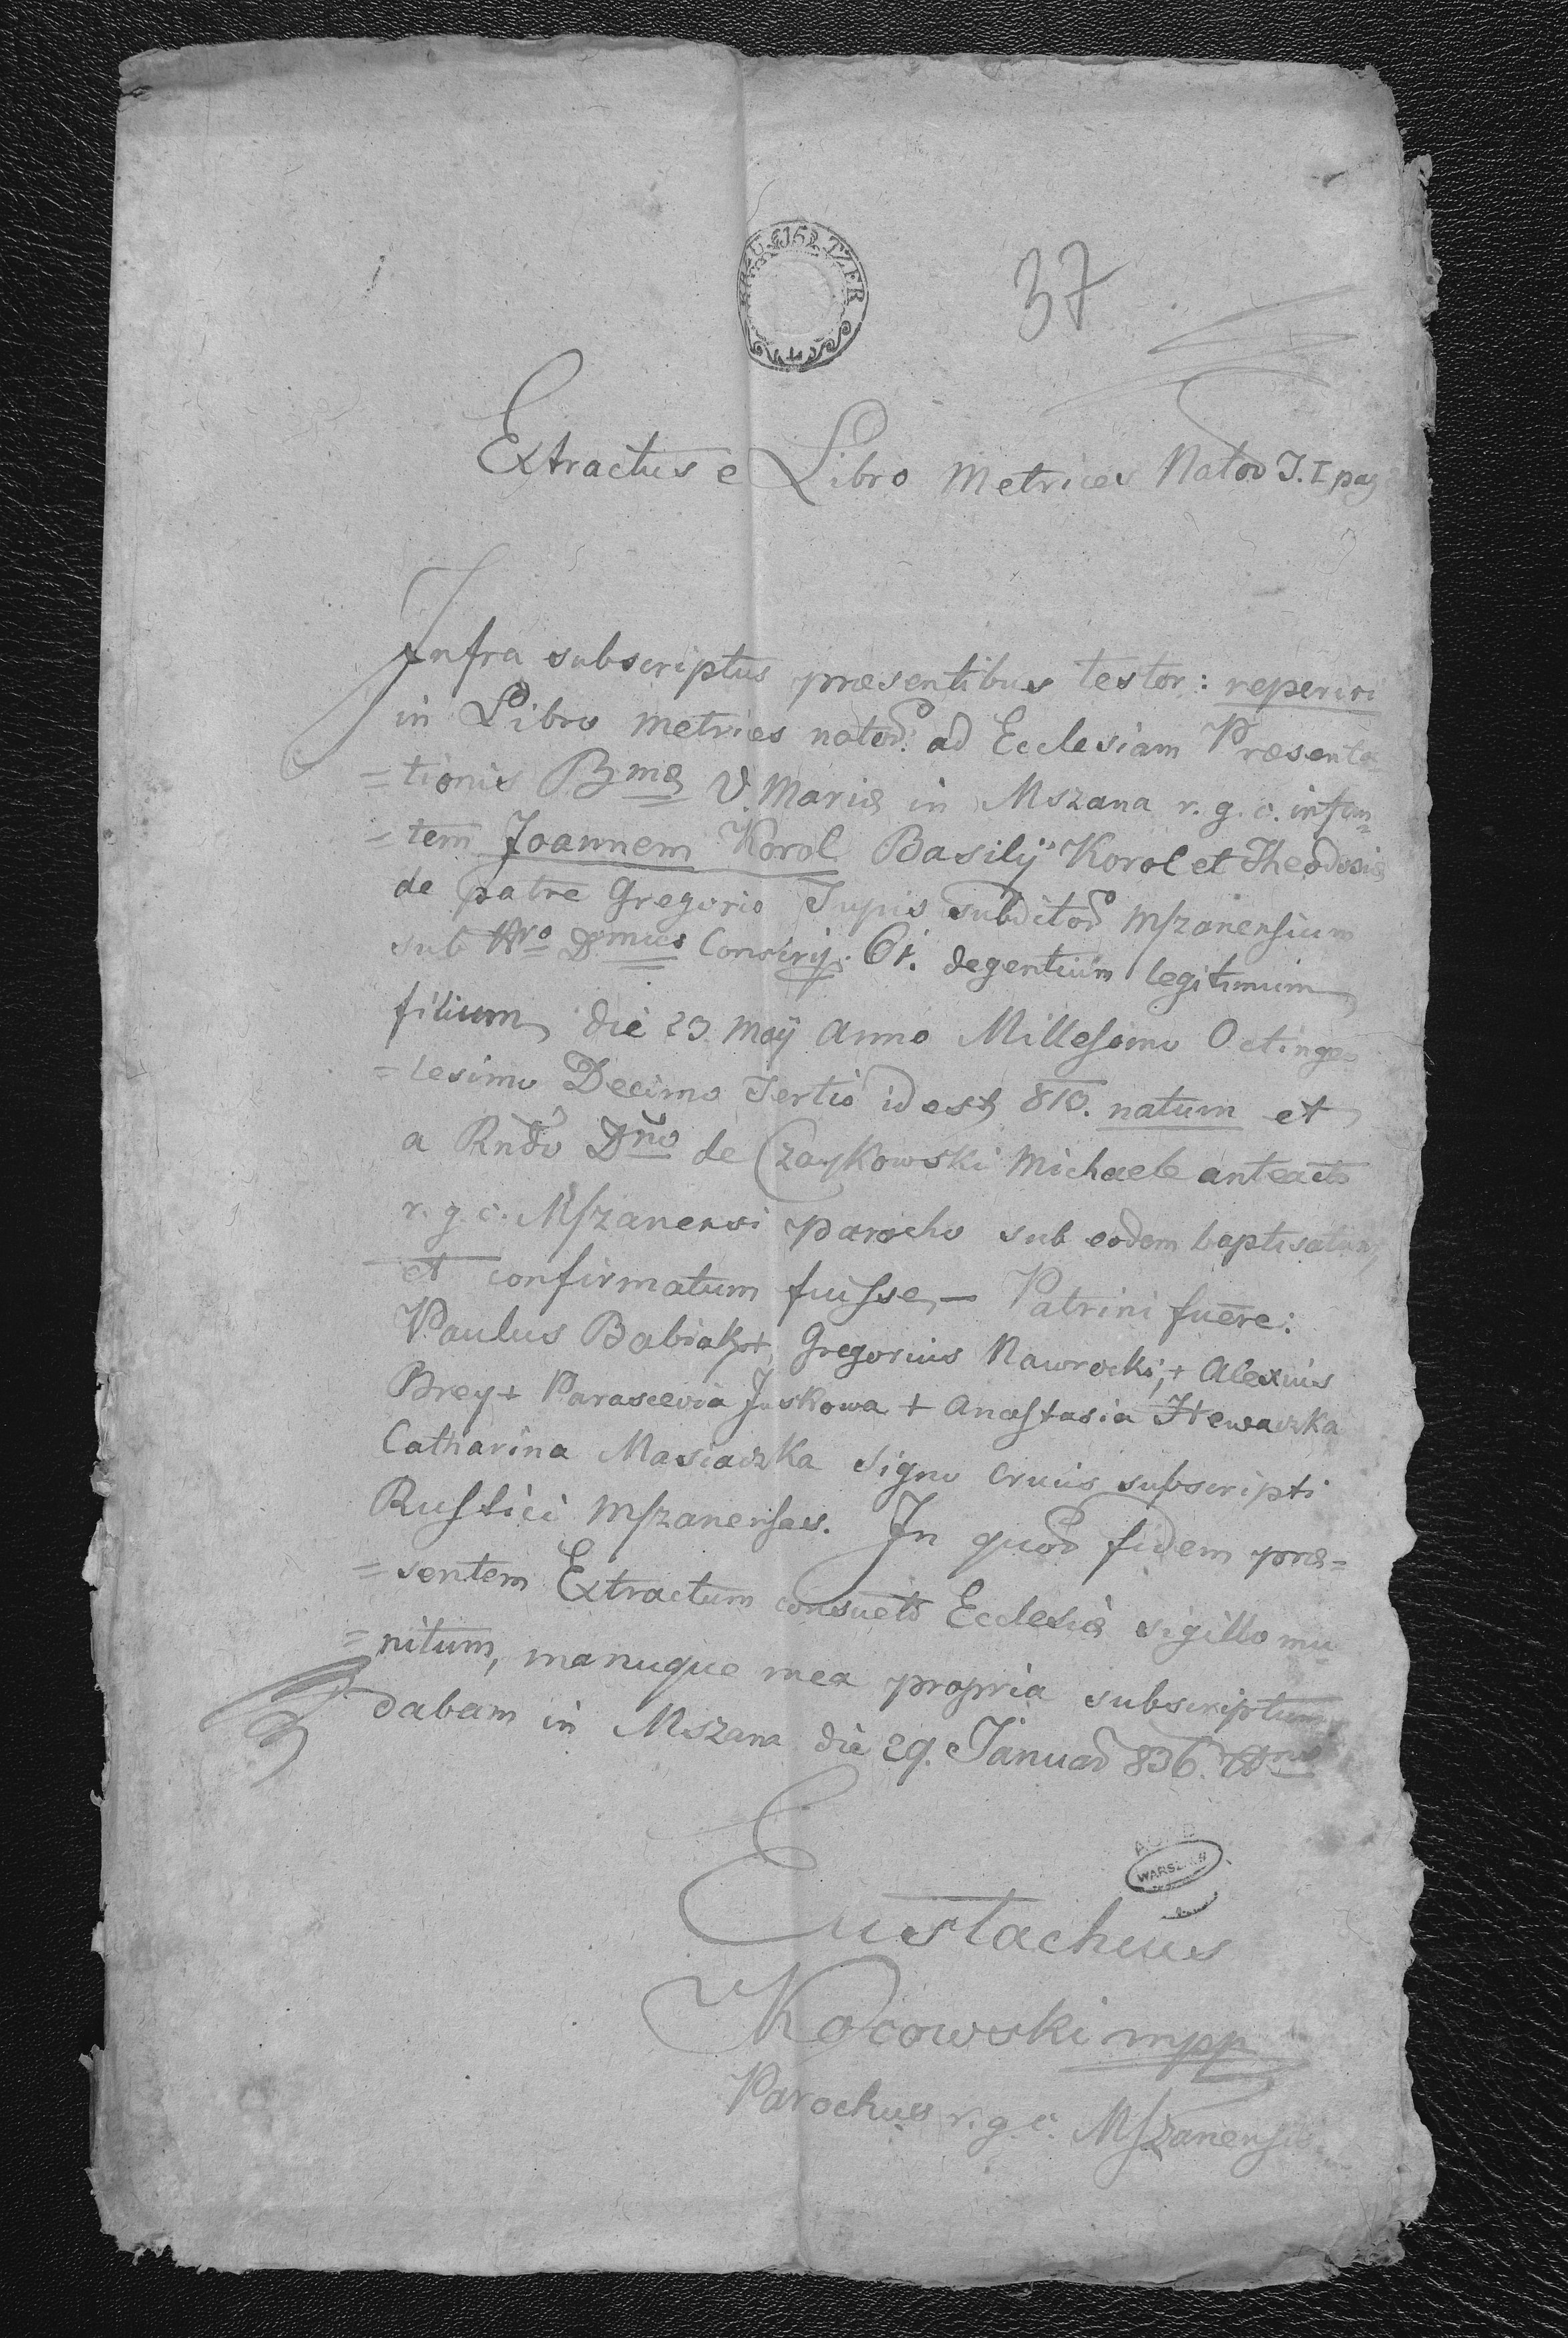 37
Extractus e Libro Metrices Nator T. I pag
Infra subscriptus præsentibus testor: reperiri
in Libro metrices nator. ad Ecclesiam Præsenta
= tionis Bmæ V. Mariæ in Mszana r. g. c. infan=
= tem Joannem Korol Basilÿ Korol et Theodosiæ
de patre Gregorio Tupis subditor Mszanensium
sub Nro Dmus Conscrip. 61. degentium legitimum
filium die 23 Maÿ Anno Millesimo Octinge
= tesimo Decimo Tertio id est 813. natum et
a Rndo Dno de Czaykowski Michaele anteacto
r. g. c. Mszanensi parocho sub eodem baptisatum,
et confirmatum fuisse, — Patrini fuere:
Paulus Babiak+, Gregorius Nawrocki, + Alexius
Brey + Parascevia Juskowa + Anastasia Hewaczka
Catharina Masiaczka signo crucis subscripti
Rustici Mszanenses. In quor fidem præ=
= sentem Extractum consueto Ecclesiæ sigillo mu
= nitum, manuque mea propria subscriptum
dabam in Mszana die 29. Januar 836.
WARSZAW
Eustachius
Kocowski mpp
Parochus r. g. c. Mszanensis